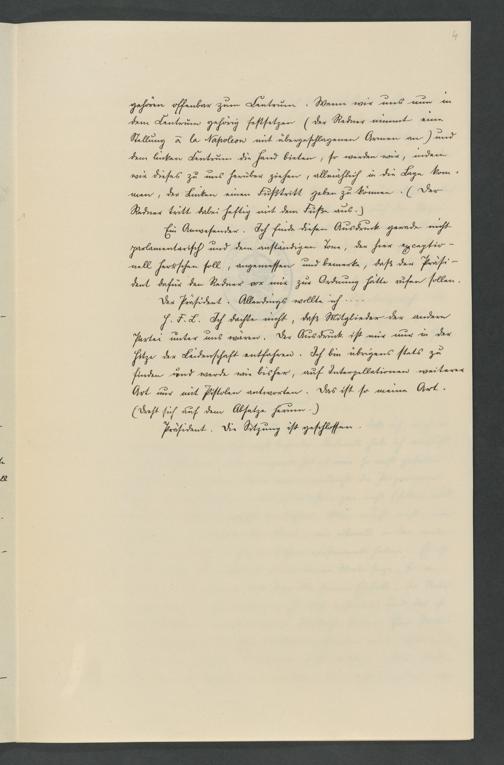 4
gehören offenbar zum Centrum. Wenn wir uns nun in
dem Centrum gehörig festsetzen (der Redner nimmt eine
Stellung à la Napoleon mit übergeschlagenen Armen an) und
dem linken Centrum die Hand bieten, so werden wir, indem
wir dieses zu uns herüber ziehen, allmählich in die Lage kom-
men, der Linken einen Fußtritt geben zu können. (Der
Redner tritt dabei heftig mit dem Fuße aus.)
Ein Anwesender. Ich finde diesen Ausdruck gerade nicht
parlamentarisch und dem anständigen Tone, der hier exceptio-
nell herrschen soll, angemessen und bemerke, daß der Präsi-
dent dafür den Redner zur Ordnung hätte rufen sollen.
Der Präsident. Allerdings wollte ich ....
H. F. L. Ich dachte nicht, daß Mitglieder der andern
Partei unter uns wären. Der Ausdruck ist mir nur in der
Hitze der Leidenschaft entfahren. Ich bin übrigens stets zu
finden und werde wie bisher, auf Interpellationen weiterer
Art nur mit Pistolen antworten. Das ist so meine Art.
(Dreht sich auf dem Absatze herum.)
Präsident. Die Sitzung ist geschlossen.